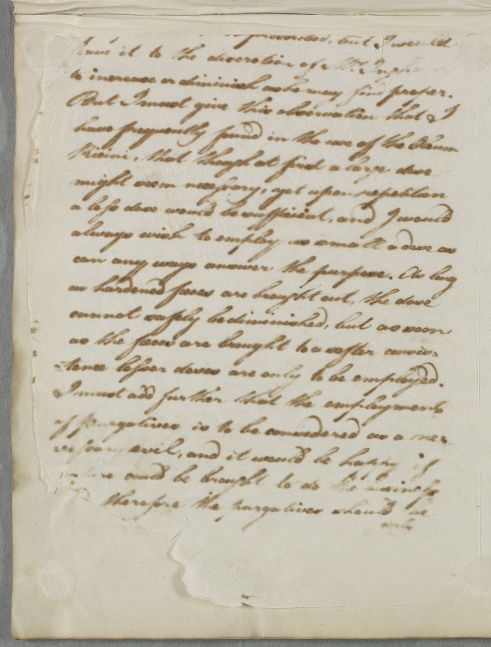 but I would
leave it to the discretion of Mr.
to increase or diminish as he may find proper.
But I must give this observation that I
have frequently found in the use of the Oleum
Ricini, that though at first a large dose
might seem necessary, yet upon repetition
a less dose would be sufficient, and I would
always wish to employ as small a dose as
can any ways answer the purpose. As long
as hardened faeces are brought out, the dose
cannot safely be diminished, but as soon
as the faeces are brought to a softer consis:
tence lesser doses are only to be employed.
I must add further that the employment
of purgatives is to be considered as a ne:
cessary evil, and it would be happy if
nature could be brought to do the business
therefore the purgatives should be
only